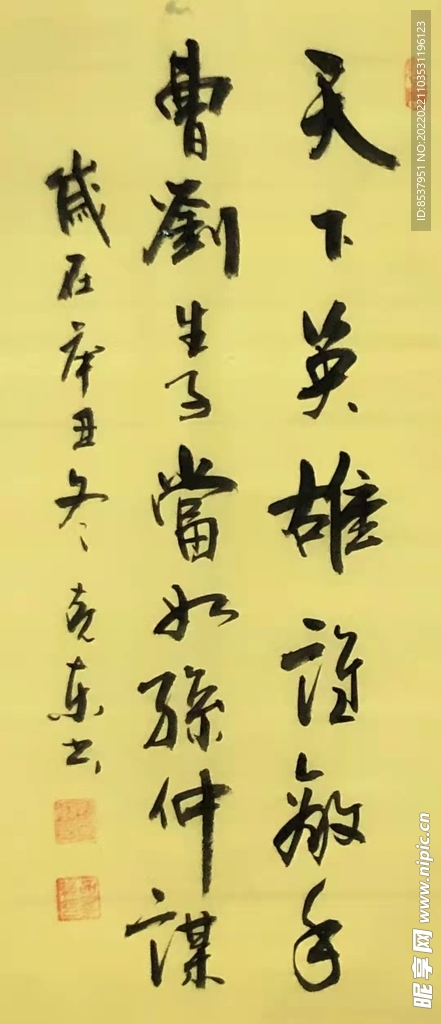 天下英雄誰敵手
曹劉生子當如孫仲謀
歲在辛丑冬 克东书
ID:8537951 NO:20220221103531196123
昵享网 www.nipic.cn